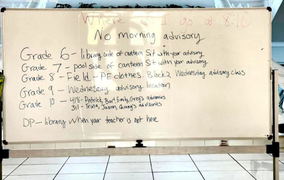 No morning advisory
Grade 6 - library side of canteen Sit with your advisory
Grade 7 - pool side of canteen Sit with your advisory
Grade 8 - Field - PE clothes, Block 2 Wednesday advisory class
Grade 9 - Wednesday advisory location
Grade 10 - 418 - Patrick, Bart, Emily, Greg's advisories
311 - Quang's advisories
DP - library when your teacher is not here